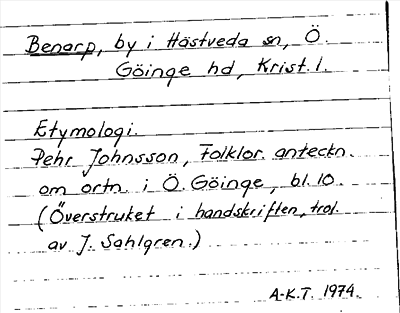 Benarp, by i Hästveda sn, Ö.
Göinge hd, Krist. l.
Etymologi.
Pehr Johnsson, Folklor. anteckn.
om ortn. i Ö. Göinge, bl. 10.
(Överstruket i handskriften, trol.
av J. Sahlgren.)
A-K.T. 1974.